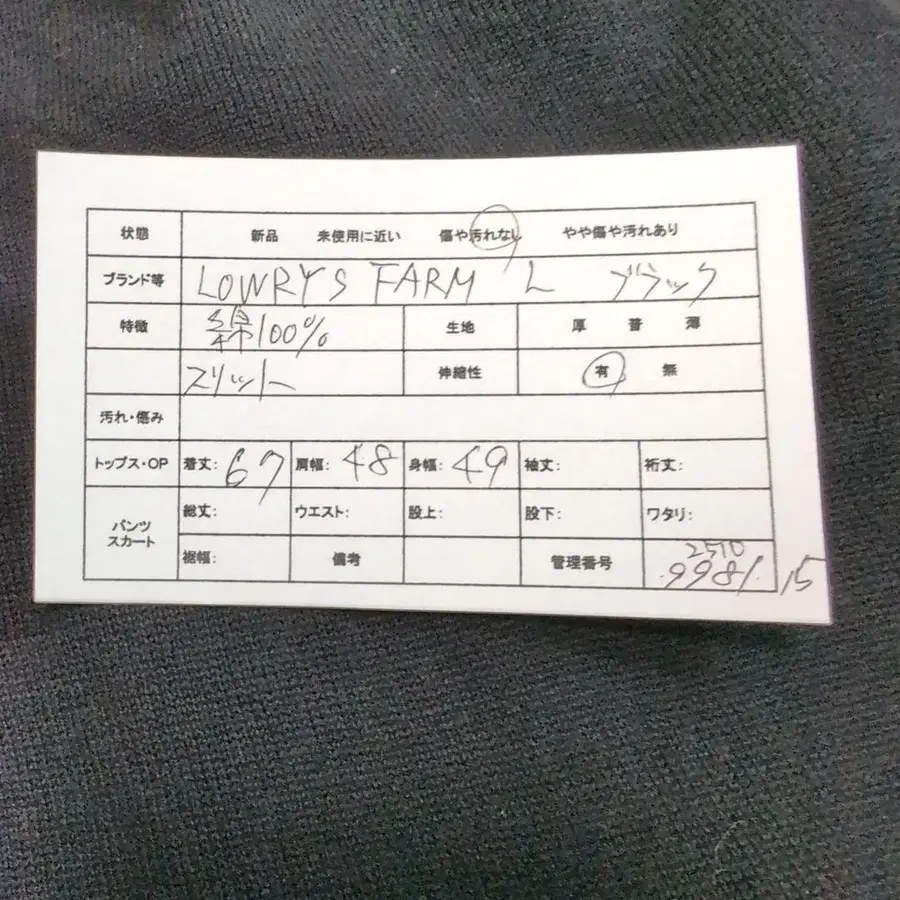 状態 新品 未使用に近い 傷や汚れなし やや傷や汚れあり
ブランド等 LOWRYS FARM L ブラック
特徴 綿100% 生地 厚 普 薄
スリット 伸縮性 有 無
汚れ・傷み
トップス・OP 着丈: 67 肩幅: 48 身幅: 49 袖丈: 裄丈:
パンツ スカート 総丈: ウエスト: 股上: 股下: ワタリ:
裾幅: 備考 管理番号 2510
9981. 15